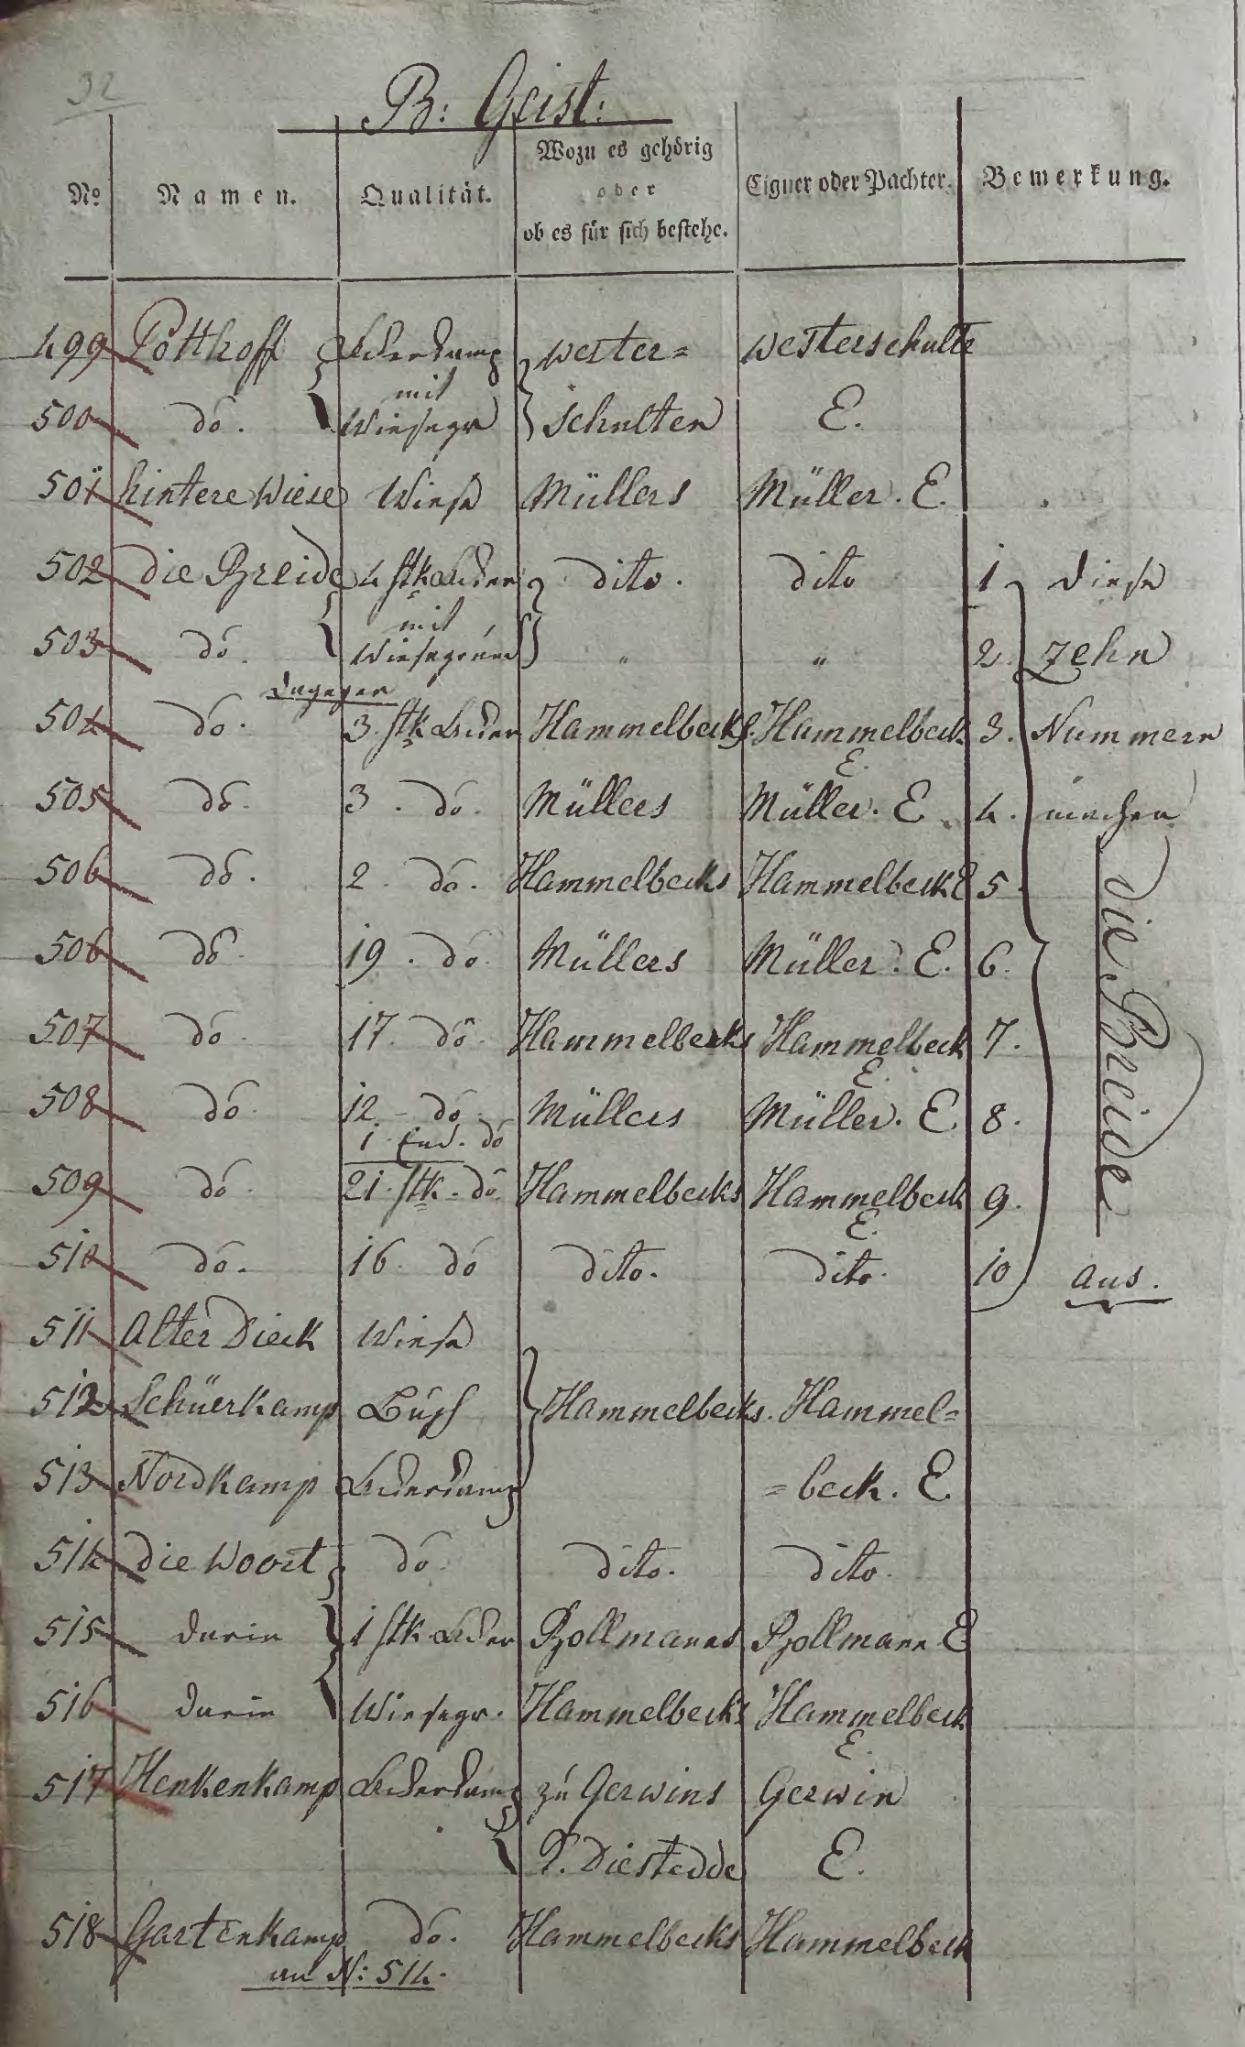 32
B: Geist:
No Namen. Qualität. Wozu es gehörig oder ob es für sich bestehe. Eigner oder Pachter. Bemerkung.
499 Potthoff Ackerkamp wester= westerschulte
mit
500 do. Wiesegr schulten E.
501 hintere Wiese Wiese Müllers Müller. E.
502 die Breide 4 stk Acker dito. dito 1 diese
mit
503 do. Wiesegrund " " 2. zehn
dagegen
504 do. 3. stk Acker Hammelbecks. Hammelbeck 3. Nummern
E.
505 do. 3. do. Müllers Müller. E. 4. machen
506 do. 2. do. Hammelbecks Hammelbeck E 5.
die Breide
506 do. 19. do. Müllers Müller. E. 6.
507 do 17. do. Hammelbecks Hammelbeck 7.
E.
508 do. 12 - do. Müllers Müller. E. 8.
1 End. do
509 do. 21. stk. do. Hammelbecks Hammelbeck 9.
E.
510 do. 16. do dito. dito. 10 aus.
511 Alter Dieck Wiese
512 Schüerkamp Busch Hammelbecks. Hammel=
513 Nordkamp Ackerkamp =beck. E.
514 die Woort do. dito. dito.
515 darin 1 stk Acker Bollmanns Bollmann E
516 darin Wiesegr. Hammelbecks Hammelbeck
E.
517 Henkenkamp Ackerkamp zu Gerwins Gerwin
P. Diestedde E.
518 Gartenkamp do. Hammelbecks Hammelbeck
an N: 514.